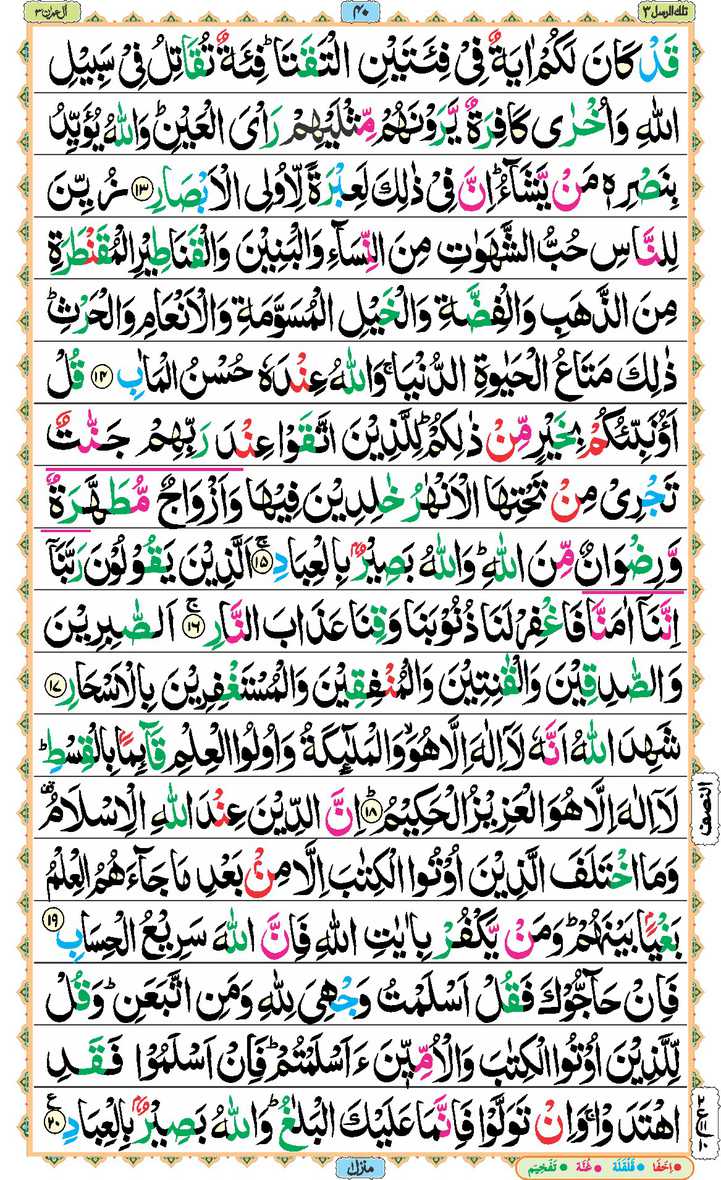 تلك الرسل ٣
٤٠
اٰل عمرٰن ٣
قَدْ كَانَ لَكُمْ اٰيَةٌ فِيْ فِئَتَيْنِ الْتَقَتَا ؕ فِئَةٌ تُقَاتِلُ فِيْ سَبِيْلِ
اللّٰهِ وَاُخْرٰى كَافِرَةٌ يَّرَوْنَهُمْ مِّثْلَيْهِمْ رَاْيَ الْعَيْنِ ؕ وَاللّٰهُ يُؤَيِّدُ
بِنَصْرِهٖ مَنْ يَّشَآءُ ؕ اِنَّ فِيْ ذٰلِكَ لَعِبْرَةً لِّاُولِي الْاَبْصَارِ ﴿۱۳﴾ زُيِّنَ
لِلنَّاسِ حُبُّ الشَّهَوٰتِ مِنَ النِّسَآءِ وَالْبَنِيْنَ وَالْقَنَاطِيْرِ الْمُقَنْطَرَةِ
مِنَ الذَّهَبِ وَالْفِضَّةِ وَالْخَيْلِ الْمُسَوَّمَةِ وَالْاَنْعَامِ وَالْحَرْثِ ؕ
ذٰلِكَ مَتَاعُ الْحَيٰوةِ الدُّنْيَا ۚ وَاللّٰهُ عِنْدَهٗ حُسْنُ الْمَاٰبِ ﴿۱۴﴾ قُلْ
اَؤُنَبِّئُكُمْ بِخَيْرٍ مِّنْ ذٰلِكُمْ ؕ لِلَّذِيْنَ اتَّقَوْا عِنْدَ رَبِّهِمْ جَنّٰتٌ
تَجْرِيْ مِنْ تَحْتِهَا الْاَنْهٰرُ خٰلِدِيْنَ فِيْهَا وَاَزْوَاجٌ مُّطَهَّرَةٌ
وَّرِضْوَانٌ مِّنَ اللّٰهِ ؕ وَاللّٰهُ بَصِيْرٌۢ بِالْعِبَادِ ۚ﴿۱۵﴾ اَلَّذِيْنَ يَقُوْلُوْنَ رَبَّنَآ
اِنَّنَآ اٰمَنَّا فَاغْفِرْ لَنَا ذُنُوْبَنَا وَقِنَا عَذَابَ النَّارِ ۚ﴿۱۶﴾ اَلصّٰبِرِيْنَ
وَالصّٰدِقِيْنَ وَالْقٰنِتِيْنَ وَالْمُنْفِقِيْنَ وَالْمُسْتَغْفِرِيْنَ بِالْاَسْحَارِ ﴿۱۷﴾
شَهِدَ اللّٰهُ اَنَّهٗ لَآ اِلٰهَ اِلَّا هُوَ ۙ وَالْمَلٰٓئِكَةُ وَاُولُوا الْعِلْمِ قَآئِمًۢا بِالْقِسْطِ ؕ
لَآ اِلٰهَ اِلَّا هُوَ الْعَزِيْزُ الْحَكِيْمُ ؕ﴿۱۸﴾ اِنَّ الدِّيْنَ عِنْدَ اللّٰهِ الْاِسْلَامُ ۟
النصف
وَمَا اخْتَلَفَ الَّذِيْنَ اُوْتُوا الْكِتٰبَ اِلَّا مِنْۢ بَعْدِ مَا جَآءَهُمُ الْعِلْمُ
بَغْيًۢا بَيْنَهُمْ ؕ وَمَنْ يَّكْفُرْ بِاٰيٰتِ اللّٰهِ فَاِنَّ اللّٰهَ سَرِيْعُ الْحِسَابِ ﴿۱۹﴾
فَاِنْ حَآجُّوْكَ فَقُلْ اَسْلَمْتُ وَجْهِيَ لِلّٰهِ وَمَنِ اتَّبَعَنِ ؕ وَقُلْ
لِّلَّذِيْنَ اُوْتُوا الْكِتٰبَ وَالْاُمِّيّٖنَ ءَاَسْلَمْتُمْ ؕ فَاِنْ اَسْلَمُوْا فَقَدِ
اهْتَدَوْا ۚ وَاِنْ تَوَلَّوْا فَاِنَّمَا عَلَيْكَ الْبَلٰغُ ؕ وَاللّٰهُ بَصِيْرٌۢ بِالْعِبَادِ ﴿۲۰﴾ ع
منزل ۱
اِخْفَا قَلْقَلَة غُنَّة تَفْخِيْم